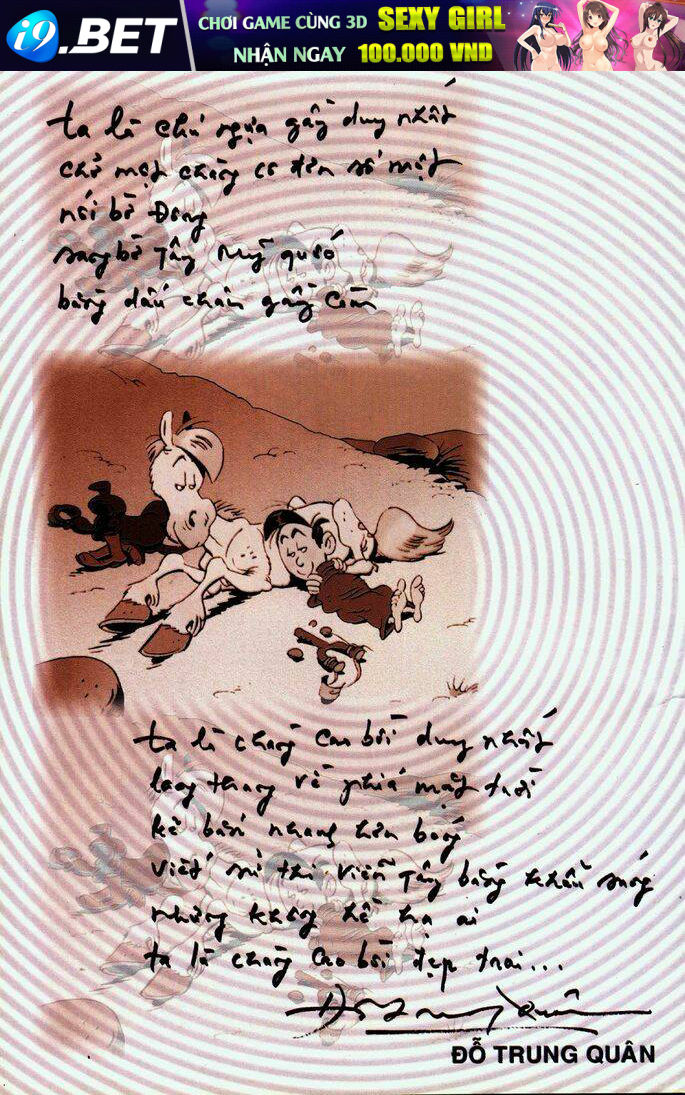 i9.BET
CHƠI GAME CÙNG 3D SEXY GIRL
NHẬN NGAY 100.000 VND
ta là chú ngựa gầy duy nhất
chở một chàng cô đơn số một
nối bờ Đông
sang bờ Tây Mỹ quốc
bằng dấu chân gầy còm
ta là chàng cao bồi duy nhất
lang thang về phía mặt trời
kẻ bắn nhanh hơn bóng
viết sử thi viễn Tây bằng khẩu súng
nhưng không hề hạ ai
ta là chàng cao bồi đẹp trai...
ĐỖ TRUNG QUÂN